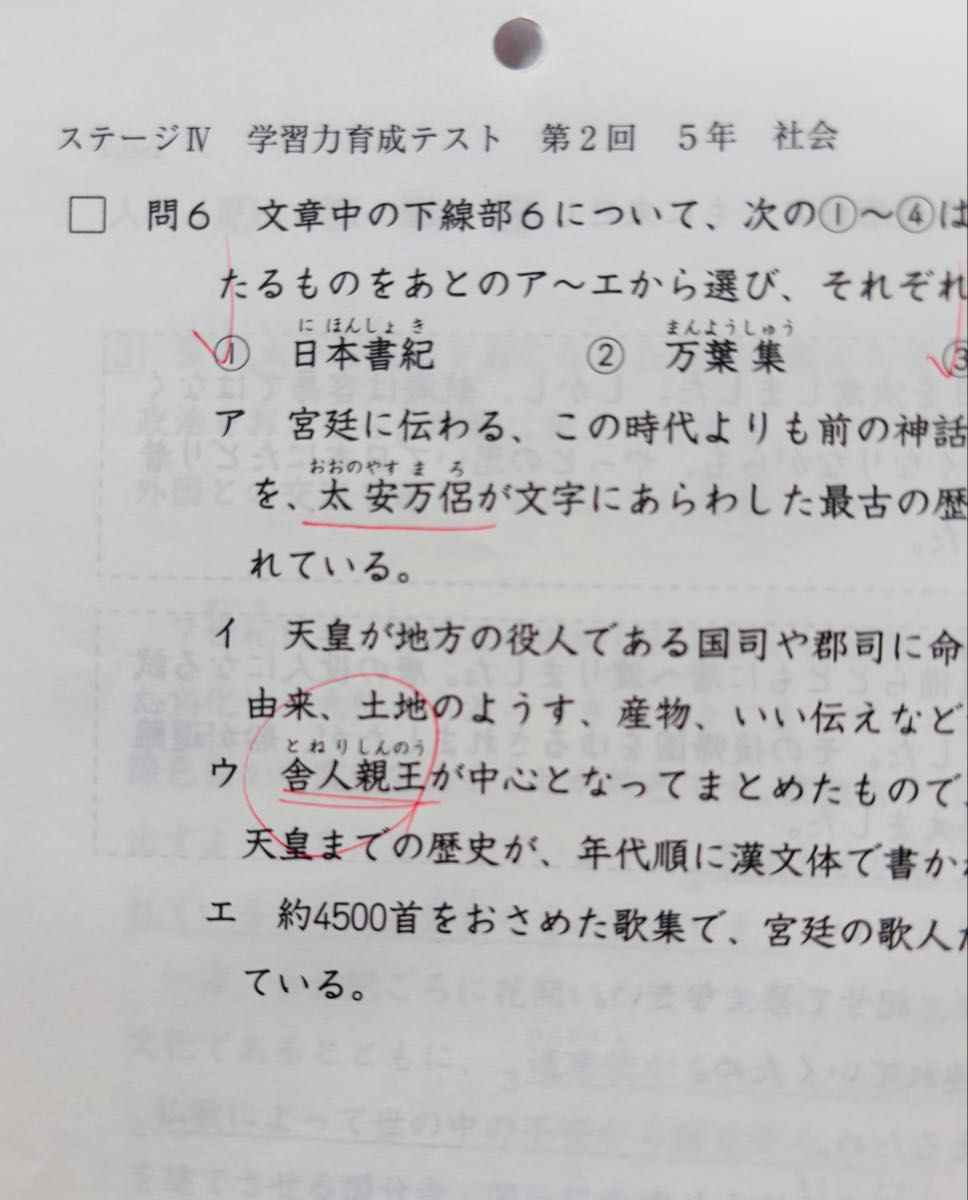 ステージⅣ 学習力育成テスト 第2回 5年 社会
□ 問6 文章中の下線部6について、次の①～④は
たるものをあとのア～エから選び、それぞれ
にほんしょき まんようしゅう
① 日本書紀 ② 万葉集 ③
ア 宮廷に伝わる、この時代よりも前の神話
おおのやすまろ
を、太安万侶が文字にあらわした最古の歴
れている。
イ 天皇が地方の役人である国司や郡司に命
由来、土地のようす、産物、いい伝えなど
とねりしんのう
ウ 舎人親王が中心となってまとめたもので、
天皇までの歴史が、年代順に漢文体で書か
エ 約4500首をおさめた歌集で、宮廷の歌人
ている。